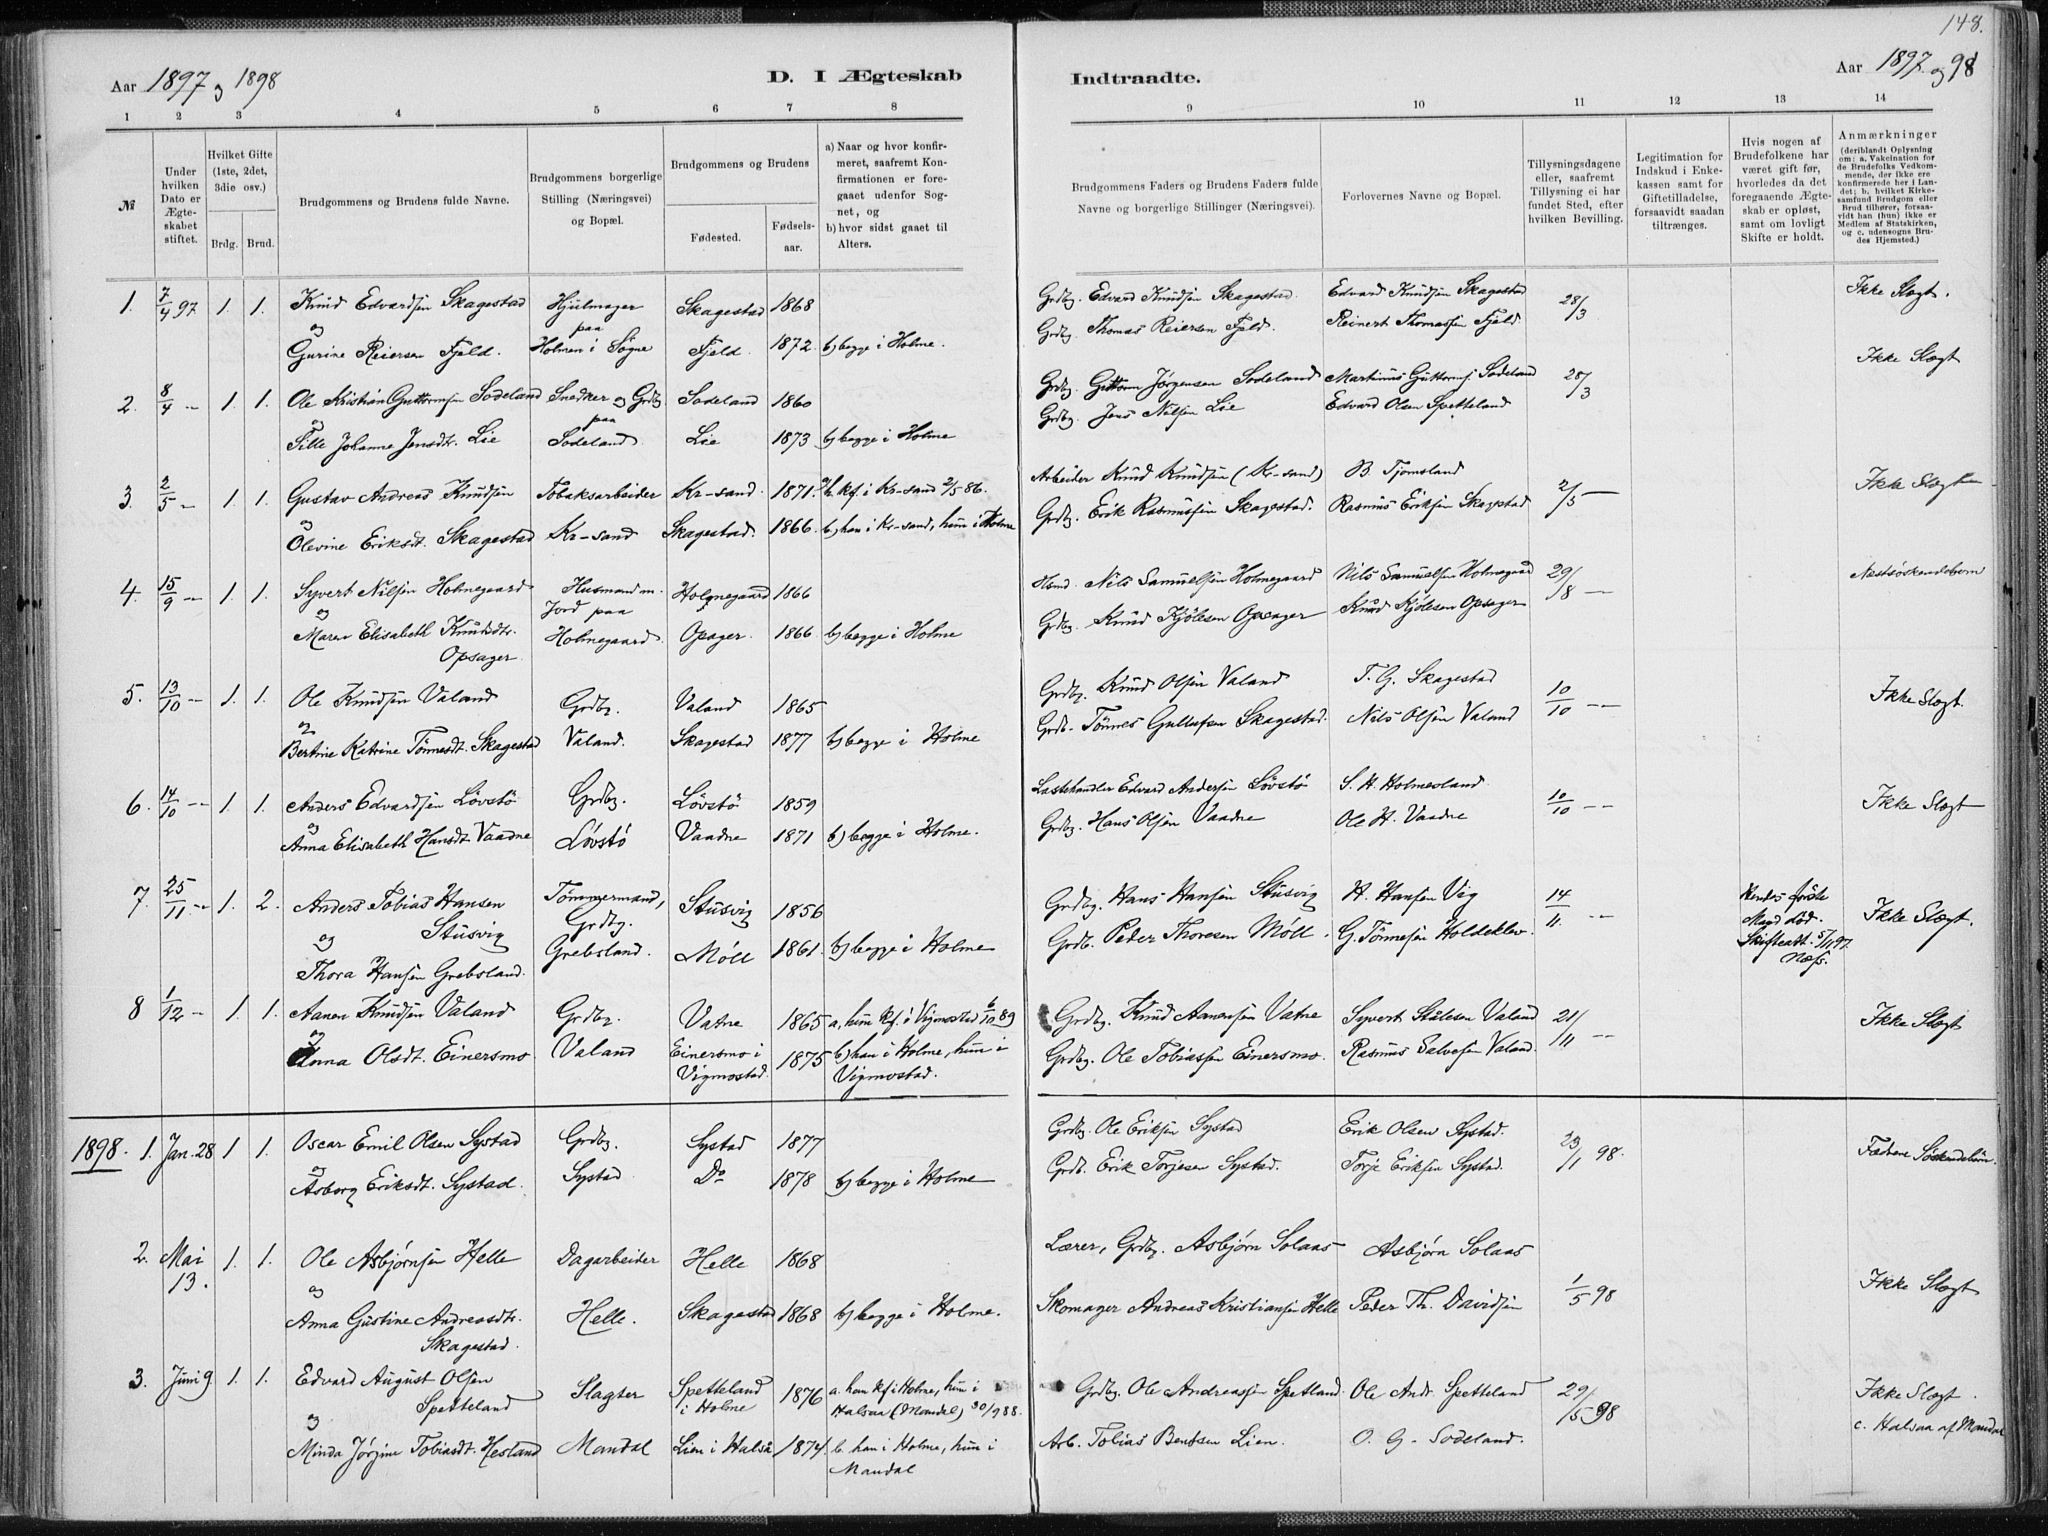 148.
Aar 1897 og 1898
D. I Ægteskab
Indtraadte.
Aar 1897 og 98
1 2 3 4 5 6 7 8
9 10 11 12 13 14
№
Under hvilken Dato er Ægteskabet stiftet.
Hvilket Gifte (1ste, 2det, 3die osv.)
Brdg. Brud.
Brudgommens og Brudens fulde Navne.
Brudgommens borgerlige Stilling (Næringsvei) og Bopæl.
Brudgommens og Brudens
Fødested. Fødselsaar.
a) Naar og hvor konfirmeret, saafremt Konfirmationen er foregaaet udenfor Sognet, og
b) hvor sidst gaaet til Alters.
Brudgommens Faders og Brudens Faders fulde Navne og borgerlige Stillinger (Næringsvei).
Forlovernes Navne og Bopæl.
Tillysningsdagene eller, saafremt Tillysning ei har fundet Sted, efter hvilken Bevilling.
Legitimation for Indskud i Enkekassen samt for Giftetilladelse, forsaavidt saadan tiltrænges.
Hvis nogen af Brudefolkene har været gift før, hvorledes da det foregaaende Ægteskab er opløst, samt om lovligt Skifte er holdt.
Anmærkninger
(deriblandt Oplysning om: a. Vakcination for de Brudefolks Vedkommende, der ikke ere konfirmerede her i Landet; b. hvilket Kirkesamfund Brudgom eller Brud tilhører, forsaavidt han (hun) ikke er Medlem af Statskirken, og c. udensogns Brudes Hjemsted.)
1. 7/4 97 1. 1. Knud Edvardsen Skagestad Hjulmager Skagestad 1868 Grdbg. Edvard Knudsen Skagestad Edvard Knudsen Skagestad 28/3 Ikke Slægt.
og paa Grdbg. Thomas Reiersen Fjeld. Reinert Thomassen Fjeld
Gurine Reiersen Fjeld. Holmen i Søgne Fjeld 1872. b) begge i Holme.
2. 8/4 - 1. 1. Ole Kristian Guttormsen Sodeland Snedker og Grdbg. Sodeland 1860 Grdbg. Guttorm Jørgensen Sodeland Martinius Guttormsf. Sodeland 28/3 Ikke Slægt
og paa Grdbg. Jens Nilsen Lie Edvard Olsen Spetteland
Tille Johanne Jensdtr. Lie Sodeland Lie 1873 b) begge i Holme
3. 2/5 - 1. 1. Gustav Andreas Knudsen Tobaksarbeider Kr-sand 1871. a. kf. i Kr-sand 2/5 86. Arbeider Knud Knudsen (Kr-sand) B. Tjomsland 2/5 - Ikke Slægt
og
Olevine Eriksdt. Skagestad Kr-sand Skagestad. 1866. b) han i Kr-sand, hun i Holme Grdbg. Erik Rasmussen Skagestad. Rasmus Eriksen Skagestad
4. 15/9 - 1. 1. Syvert Nilsen Holmegaard Husmand m. Holmegaard 1866 Hsmd. Nils Samuelsen Holmegaard Nils Samuelsen Holmegaard 29/8 - Næstsøskendebørn
og Jord paa
Maren Elisabeth Knudsdtr. Opsager. Holmegaard. Opsager. 1866 b) begge i Holme Grdbg. Knud Kjølesen Opsager Knud Kjølesen Opsager
5. 13/10 - 1. 1. Ole Knudsen Valand Grdbg. Valand 1865 Grdbg. Knud Olsen Valand T. G. Skagestad 10/10 - Ikke Slægt.
og
Bertine Katrine Tönnesdt. Skagestad Valand. Skagestad 1877 b) begge i Holme Grdb. Tönnes Gullufsen Skagestad. Nils Olsen Valand
6. 14/10 - 1 1. Anders Edvardsen Lövstö Grdbg. Lövstö 1859 Lasthandler Edvard Andersen Lövstö S. H. Holmesland 10/10 - Ikke Slægt
og
Anna Elisabeth Hansdt. Vaadne Løvstø Vaadne 1871 b) begge i Holme. Grdbg. Hans Olsen Vaadne Ole H. Vaadne
7. 25/11 - 1. 2. Anders Tobias Hansen Stusvig Tömmermand, Grdbg. Stusvig 1856 Grdbg. Hans Hansen Stusvig H. Hansen Vig 14/11. - Hendes første Mand død. Skifteatt. 5/11 97. Næss. Ikke Slægt.
og
Thora Hansen Grebsland. Grebsland. Möll 1861. b) begge i Holme Grdb. Peder Thoresen Möll. G. Tönnesen Holdeklev.
8 1/12 - 1. 1. Aanen Knudsen Valand Grdbg. Vatne 1865 a, hun kf. i Vigmostad 6/10 89 Grdbg. Knud Aanensen Vatne Syvert Stulesen Valand 21/11 - Ikke Slægt
og
Anna Olsdt. Einersmo Valand Einersmo i Vigmostad 1875 b) han i Holme, hun i Vigmostad. Grdbg. Ole Tobiassen Einersmo. Rasmus Salvesen Valand.
1898. 1. Jan. 28 1 1. Oscar Emil Olsen Systad Grdbg. Systad 1877 Grdbg. Ole Eriksen Systad Erik Olsen Systad. 23/1 98. Fædrene Søskendebørn.
og
Asborg Eriksdt. Systad. Systad Do 1878 b) begge i Holme Grdb. Erik Torjesen Systad. Torje Eriksen Systad.
2. Mai 13. 1. 1. Ole Asbjørnsen Helle Dagarbeider Helle 1868 Lærer, Grdbg. Asbjørn Solaas Asbjørn Solaas 1/5 98 Ikke Slægt
og
Anna Gustine Andreasdtr. Skagestad. Helle. Skagestad 1868 b) begge i Holme. Skomager Andreas Kristiansen Helle Peder Th. Davidsen
3. Juni 9 1. 1. Edvard August Olsen Spetteland Slagter Spetteland i Holme 1876 a. han kf. i Holme, hun i Halsaa (Mandal) 30/9 88. Grdbg. Ole Andreassen Spetland Ole Andr. Spetteland 29/5 98 Ikke Slægt.
og c. Halsaa af Mandal
Minda Jørgine Tobiasdt. Hesland Mandal Lien i Halså 1874 b. han i Holme, hun i Mandal Arb. Tobias Bentsen Lien. O. G. Sodeland.